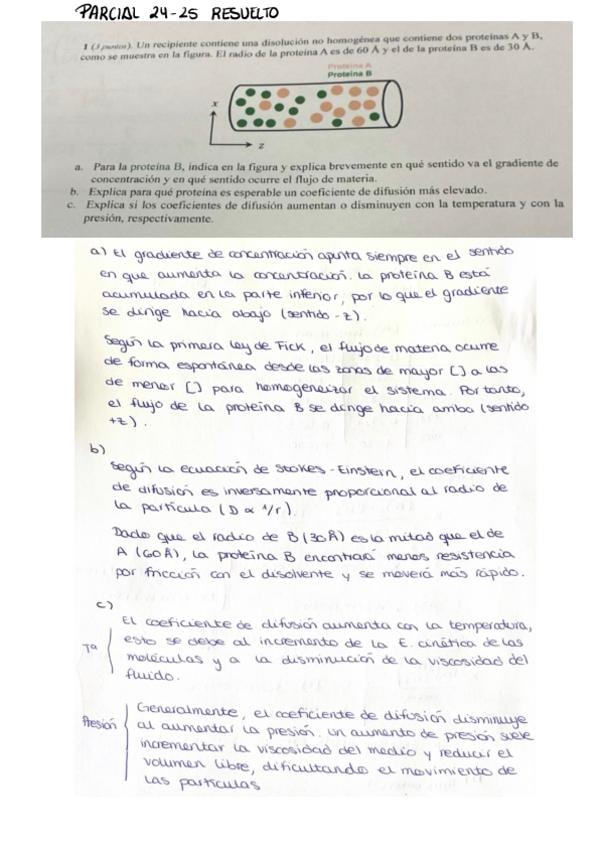 PARCIAL 24-25 RESUELTO
1 (3 puntos). Un recipiente contiene una disolución no homogénea que contiene dos proteínas A y B,
como se muestra en la figura. El radio de la proteína A es de 60 Å y el de la proteína B es de 30 Å.
Proteína A
Proteína B
x
z
a. Para la proteína B, indica en la figura y explica brevemente en qué sentido va el gradiente de
concentración y en qué sentido ocurre el flujo de materia.
b. Explica para qué proteína es esperable un coeficiente de difusión más elevado.
c. Explica si los coeficientes de difusión aumentan o disminuyen con la temperatura y con la
presión, respectivamente.
a) El gradiente de concentración apunta siempre en el sentido
en que aumenta la concentración. La proteína B está
acumulada en la parte inferior, por lo que el gradiente
se dirige hacia abajo (sentido -z).
Según la primera ley de Fick, el flujo de materia ocurre
de forma espontánea desde las zonas de mayor [] a las
de menor [] para homogeneizar el sistema. Por tanto,
el flujo de la proteína B se dirige hacia arriba (sentido
+z).
b)
Según la ecuación de Stokes-Einstern, el coeficiente
de difusión es inversamente proporcional al radio de
la partícula (D ∝ 1/r).
Dado que el radio de B (30Å) es la mitad que el de
A (60Å), la proteína B encontrará menos resistencia
por fricción con el disolvente y se moverá más rápido.
c)
El coeficiente de difusión aumenta con la temperatura,
esto se debe al incremento de la E. cinética de las
Tª
moléculas y a la disminución de la viscosidad del
fluido.
Generalmente, el coeficiente de difusión disminuye
Presión
al aumentar la presión. Un aumento de presión suele
incrementar la viscosidad del medio y reducir el
volumen libre, dificultando el movimiento de
las partículas